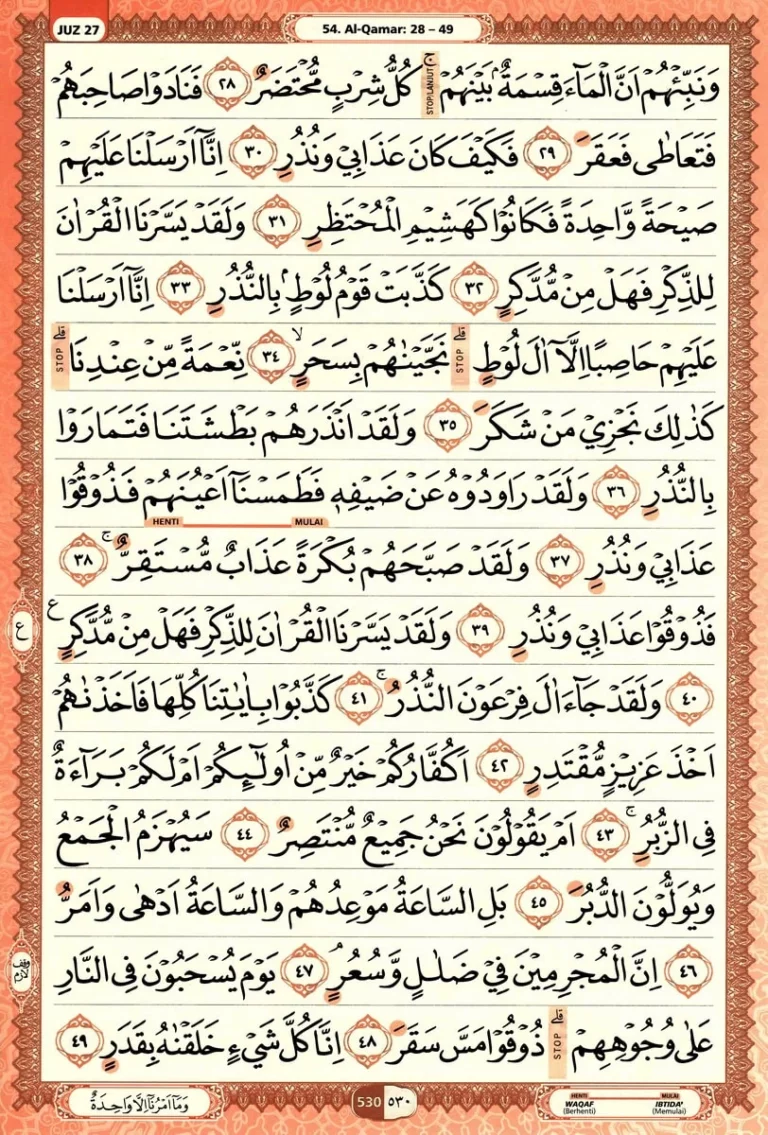 JUZ 27
54. Al-Qamar: 28 – 49
وَنَبِّئْهُمْ اَنَّ الْمَاۤءَ قِسْمَةٌ ۢ بَيْنَهُمْ ۚ كُلُّ شِرْبٍ مُّحْتَضَرٌ ٢٨ فَنَادَوْا صَاحِبَهُمْ
STOP LANJUT
فَتَعَاطٰى فَعَقَرَ ٢٩ فَكَيْفَ كَانَ عَذَابِيْ وَنُذُرِ ٣٠ اِنَّآ اَرْسَلْنَا عَلَيْهِمْ
صَيْحَةً وَّاحِدَةً فَكَانُوْا كَهَشِيْمِ الْمُحْتَظِرِ ٣١ وَلَقَدْ يَسَّرْنَا الْقُرْاٰنَ
لِلذِّكْرِ فَهَلْ مِنْ مُّدَّكِرٍ ٣٢ كَذَّبَتْ قَوْمُ لُوْطٍ ۢ بِالنُّذُرِ ٣٣ اِنَّآ اَرْسَلْنَا
عَلَيْهِمْ حَاصِبًا اِلَّآ اٰلَ لُوْطٍ ۗ نَجَّيْنٰهُمْ بِسَحَرٍ ۙ ٣٤ نِّعْمَةً مِّنْ عِنْدِنَا ۗ
STOP
STOP
كَذٰلِكَ نَجْزِيْ مَنْ شَكَرَ ٣٥ وَلَقَدْ اَنْذَرَهُمْ بَطْشَتَنَا فَتَمَارَوْا
بِالنُّذُرِ ٣٦ وَلَقَدْ رَاوَدُوْهُ عَنْ ضَيْفِهٖ فَطَمَسْنَآ اَعْيُنَهُمْ فَذُوْقُوْا
HENTI MULAI
عَذَابِيْ وَنُذُرِ ٣٧ وَلَقَدْ صَبَّحَهُمْ بُكْرَةً عَذَابٌ مُّسْتَقِرٌّ ۚ ٣٨
فَذُوْقُوْا عَذَابِيْ وَنُذُرِ ٣٩ وَلَقَدْ يَسَّرْنَا الْقُرْاٰنَ لِلذِّكْرِ فَهَلْ مِنْ مُّدَّكِرٍ ع
ع
٤٠ وَلَقَدْ جَاۤءَ اٰلَ فِرْعَوْنَ النُّذُرُ ۚ ٤١ كَذَّبُوْا بِاٰيٰتِنَا كُلِّهَا فَاَخَذْنٰهُمْ
اَخْذَ عَزِيْزٍ مُّقْتَدِرٍ ٤٢ اَكُفَّارُكُمْ خَيْرٌ مِّنْ اُولٰۤىِٕكُمْ اَمْ لَكُمْ بَرَاۤءَةٌ
فِى الزُّبُرِ ۚ ٤٣ اَمْ يَقُوْلُوْنَ نَحْنُ جَمِيْعٌ مُّنْتَصِرٌ ٤٤ سَيُهْزَمُ الْجَمْعُ
وَيُوَلُّوْنَ الدُّبُرَ ٤٥ بَلِ السَّاعَةُ مَوْعِدُهُمْ وَالسَّاعَةُ اَدْهٰى وَاَمَرُّ
٤٦ اِنَّ الْمُجْرِمِيْنَ فِيْ ضَلٰلٍ وَّسُعُرٍ ۘ ٤٧ يَوْمَ يُسْحَبُوْنَ فِى النَّارِ
عَلٰى وُجُوْهِهِمْ ۗ ذُوْقُوْا مَسَّ سَقَرَ ٤٨ اِنَّا كُلَّ شَيْءٍ خَلَقْنٰهُ بِقَدَرٍ ٤٩
STOP
وَمَآ اَمْرُنَآ اِلَّا وَاحِدَةٌ
530 ٥٣٠
HENTI MULAI
WAQAF IBTIDA'
(Berhenti) (Memulai)